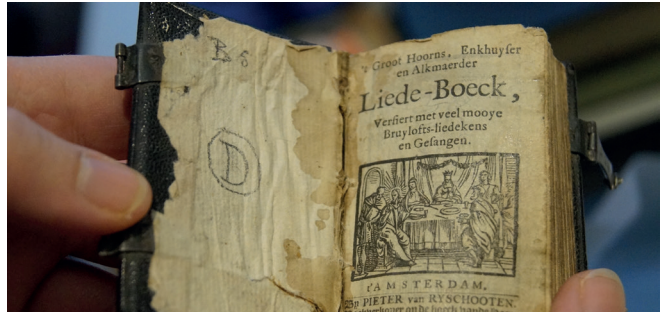 B 6
D
't Groot Hoorns, Enkhuyser
en Alkmaerder
Liede-Boeck,
Versiert met veel mooye
Bruylofts-liedekens
en Gesangen.
t'AMSTERDAM,
By PIETER van RYSCHOOTEN.